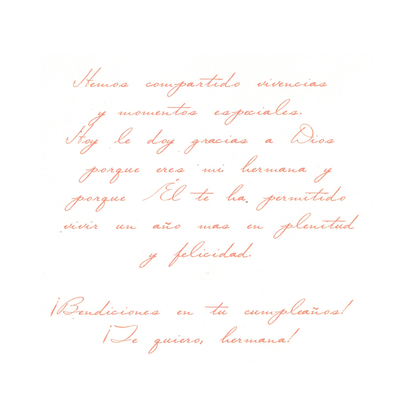 Hemos compartido vivencias
y momentos especiales.
Hoy le doy gracias a Dios
porque eres mi hermana y
porque Él te ha permitido
vivir un año mas en plenitud
y felicidad.
¡Bendiciones en tu cumpleaños!
¡Te quiero, hermana!